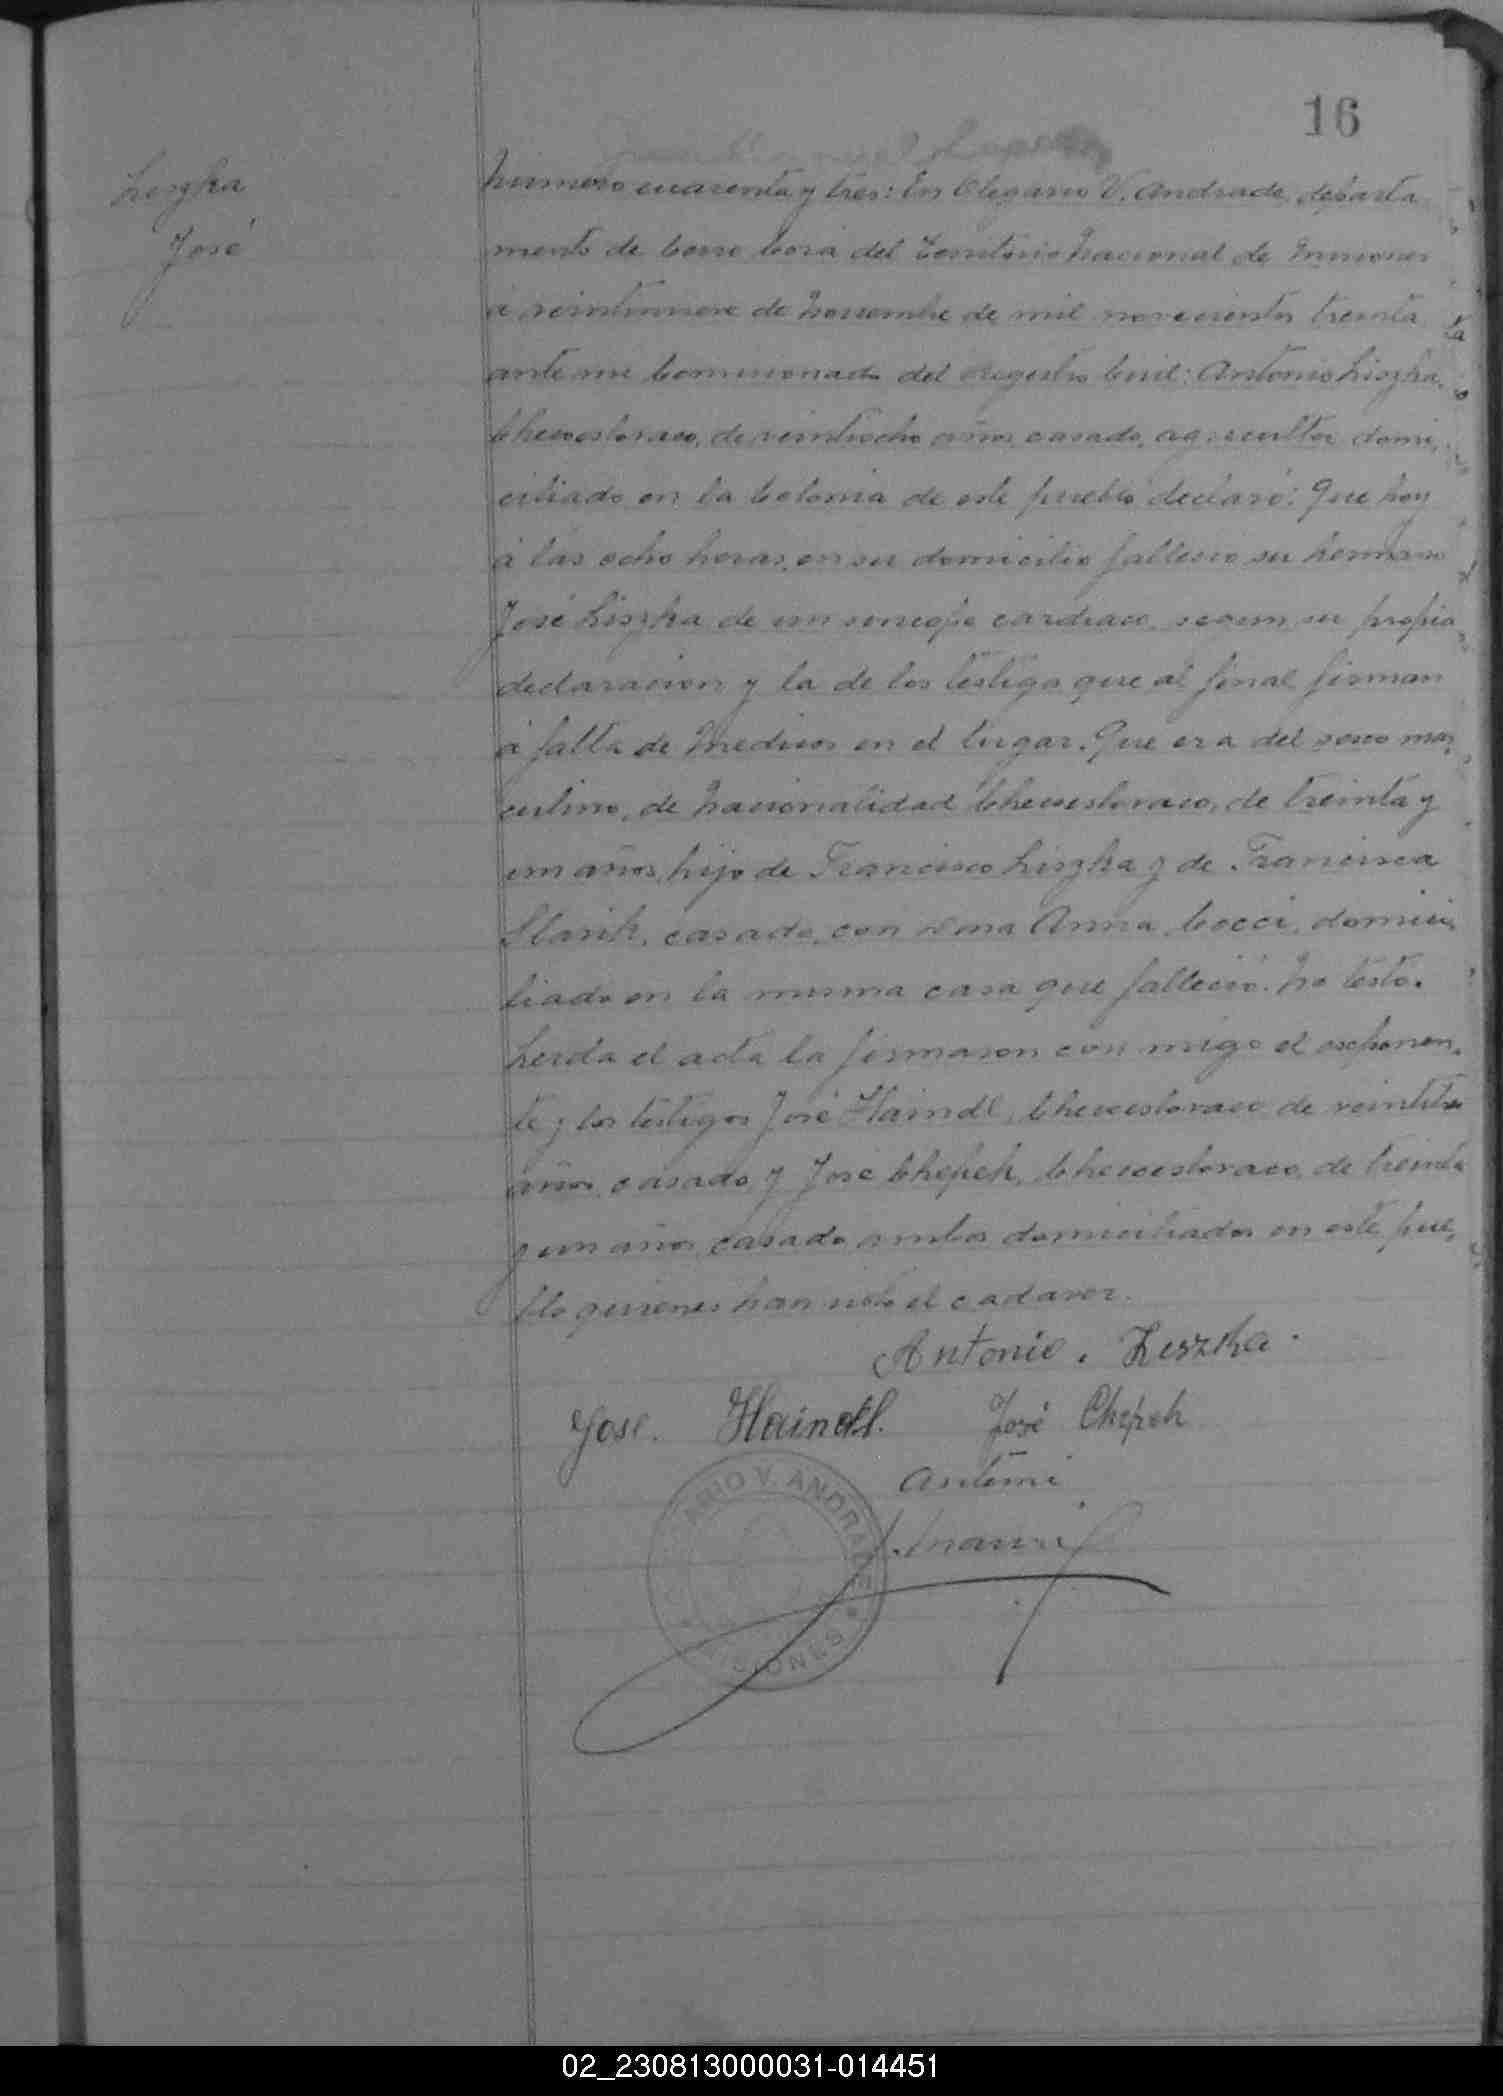 16
Liszka
José
Número cuarenta y tres: En Olegario V. Andrade, departa
mento de Cerro Corá del Territorio Nacional de Misiones
á veintinueve de Noviembre de mil novecientos treinta
ante mi Comisionado del Registro Civil: Antonio Liszka,
Checoeslovaco, de veintiocho años, casado, agricultor domi,
ciliado en la Colonia de este pueblo declaró: Que hoy
á las ocho horas, en su domicilio fallesio su hermano
José Liszka de un sincope cardiaco, segun su propia
declaracion y la de los testigo que al final firman
á falta de Medicos en el lugar. Que era del sexo mas,
culino, de Nacionalidad Checoeslovaco, de treinta y
un años, hijo de Francisco Liszka y de Francisca
casado, con Dona Anna Cocci, domici,
liado en la misma casa que falleció. No testo.
Leida el acta la firmaron con migo el exponen,
te y los testigos José Haindl, Checoeslovaco de veintitres
años, casado, y José Chepeh, Checoeslovaco, de treinta
y un años, casado ambos domiciliados en este pue,
blo quienes han visto el cadaver.
Antonio. Liszka.
José. Haindl. José Chepeh
Antoni
ARIO V. ANDRADE
MISIONES
02_230813000031-014451